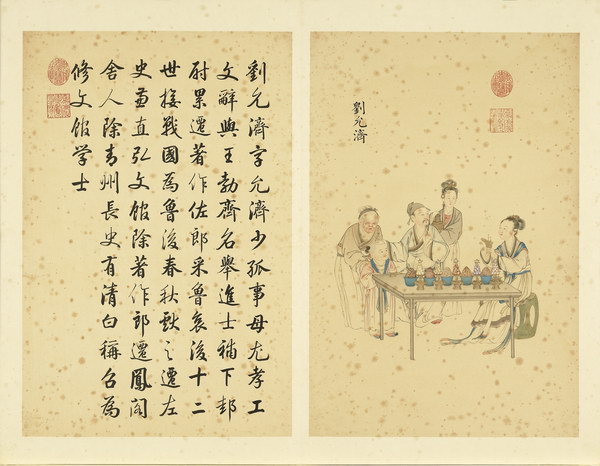 劉允濟
劉允濟字允濟少孤事母尤孝工
文辭與王勃齊名舉進士補下邽
尉累遷著作佐郎采魯哀後十二
世接戰國為魯後春秋獻之遷左
史兼直弘文館除著作郎遷鳳閣
舍人除青州長史有清白稱召為
修文館学士